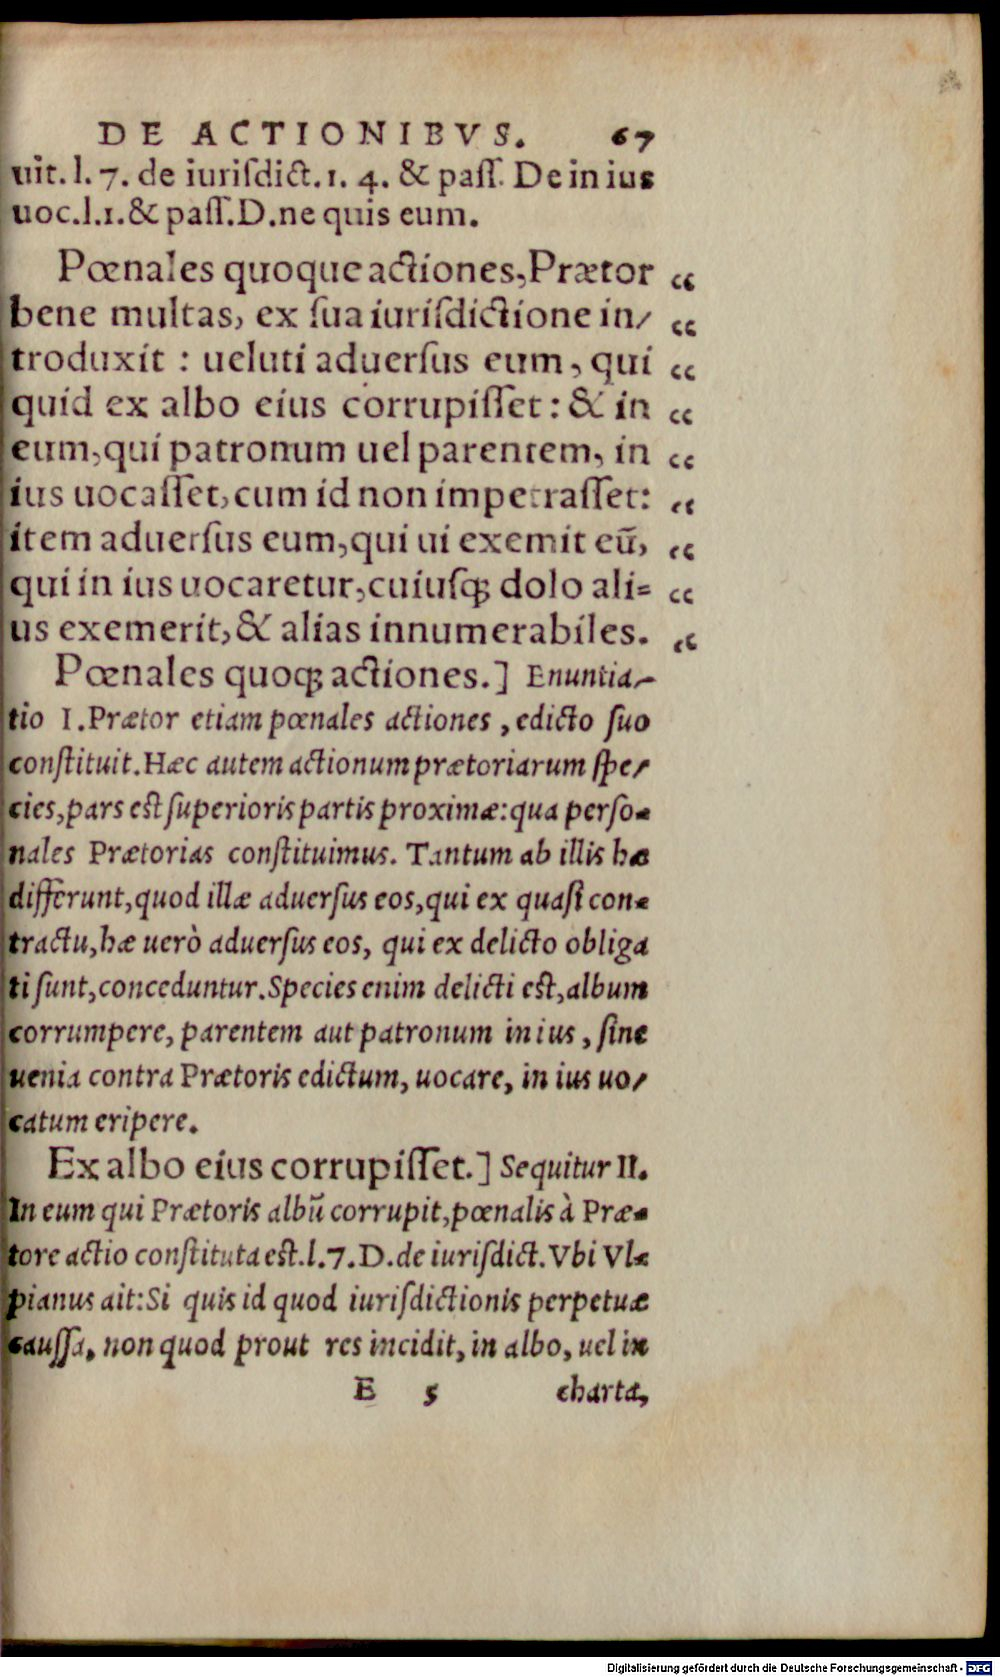 DE ACTIONIBVS. 67
uit. l. 7. de iuriſdict. 1. 4. & paſſ. De in ius
uoc.l.1.& paſſ.D.ne quis eum.
Pœnales quoque actiones, Prætor “
bene multas, ex ſua iuriſdictione in/ “
troduxit : ueluti aduerſus eum, qui “
quid ex albo eius corrupiſſet: & in “
eum, qui patronum uel parentem, in “
ius uocaſſet, cum id non impetraſſet: “
item aduerſus eum, qui ui exemit eũ, “
qui in ius uocaretur, cuiusq; dolo ali= “
us exemerit, & alias innumerabiles. “
Pœnales quoq; actiones.] Enuntia-
tio I. Prætor etiam pœnales actiones, edicto ſuo
conſtituit. Hæc autem actionum prætoriarum ſpe/
cies, pars eſt ſuperioris partis proximæ: qua perſo=
nales Prætorias conſtituimus. Tantum ab illis hæ
differunt, quod illæ aduerſus eos, qui ex quaſi con=
tractu, hæ uerò aduerſus eos, qui ex delicto obliga
ti ſunt, conceduntur. Species enim delicti eſt, album
corrumpere, parentem aut patronum in ius, ſine
uenia contra Prætoris edictum, uocare, in ius uo/
catum eripere.
Ex albo eius corrupiſſet.] Sequitur II.
In eum qui Prætoris albũ corrupit, pœnalis à Præ=
tore actio conſtituta eſt. l. 7. D. de iuriſdict. Vbi Vl=
pianus ait: Si quis id quod iuriſdictionis perpetuæ
cauſſa, non quod prout res incidit, in albo, uel in
E 5 charta,
Digitalisierung gefördert durch die Deutsche Forschungsgemeinschaft - DFG